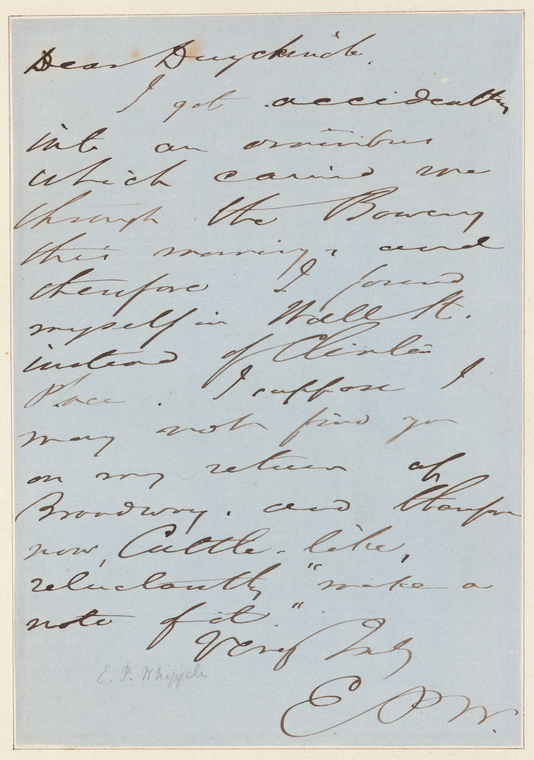 Dear Duyckinck,
I got accidentally
into an omnibus
which carried me
through the Bowery
this morning, and
therefore I found
myself in Wall St.
instead of Clinton
Place. I suppose I
may not find you
on my return up
Broadway. and therefore
now, Cuttle-like,
reluctantly "make a
note of it."
Very Truly
E. P. W.
E. P. Whipple